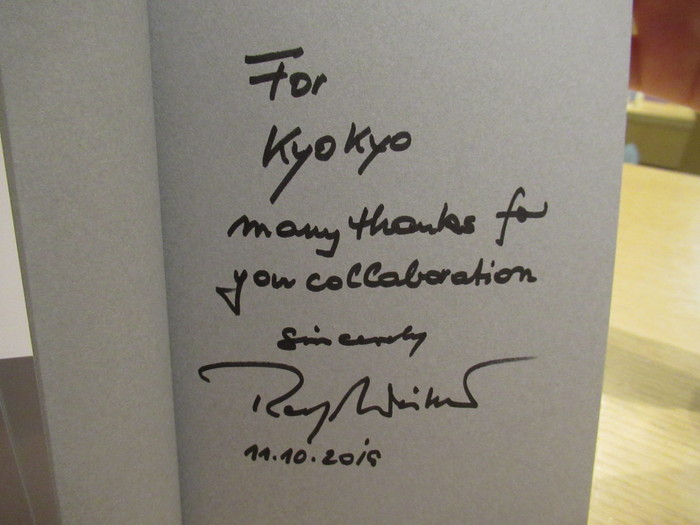 For
Kyokyo
many thanks for
your collaboration
Sincerely
11.10.2019